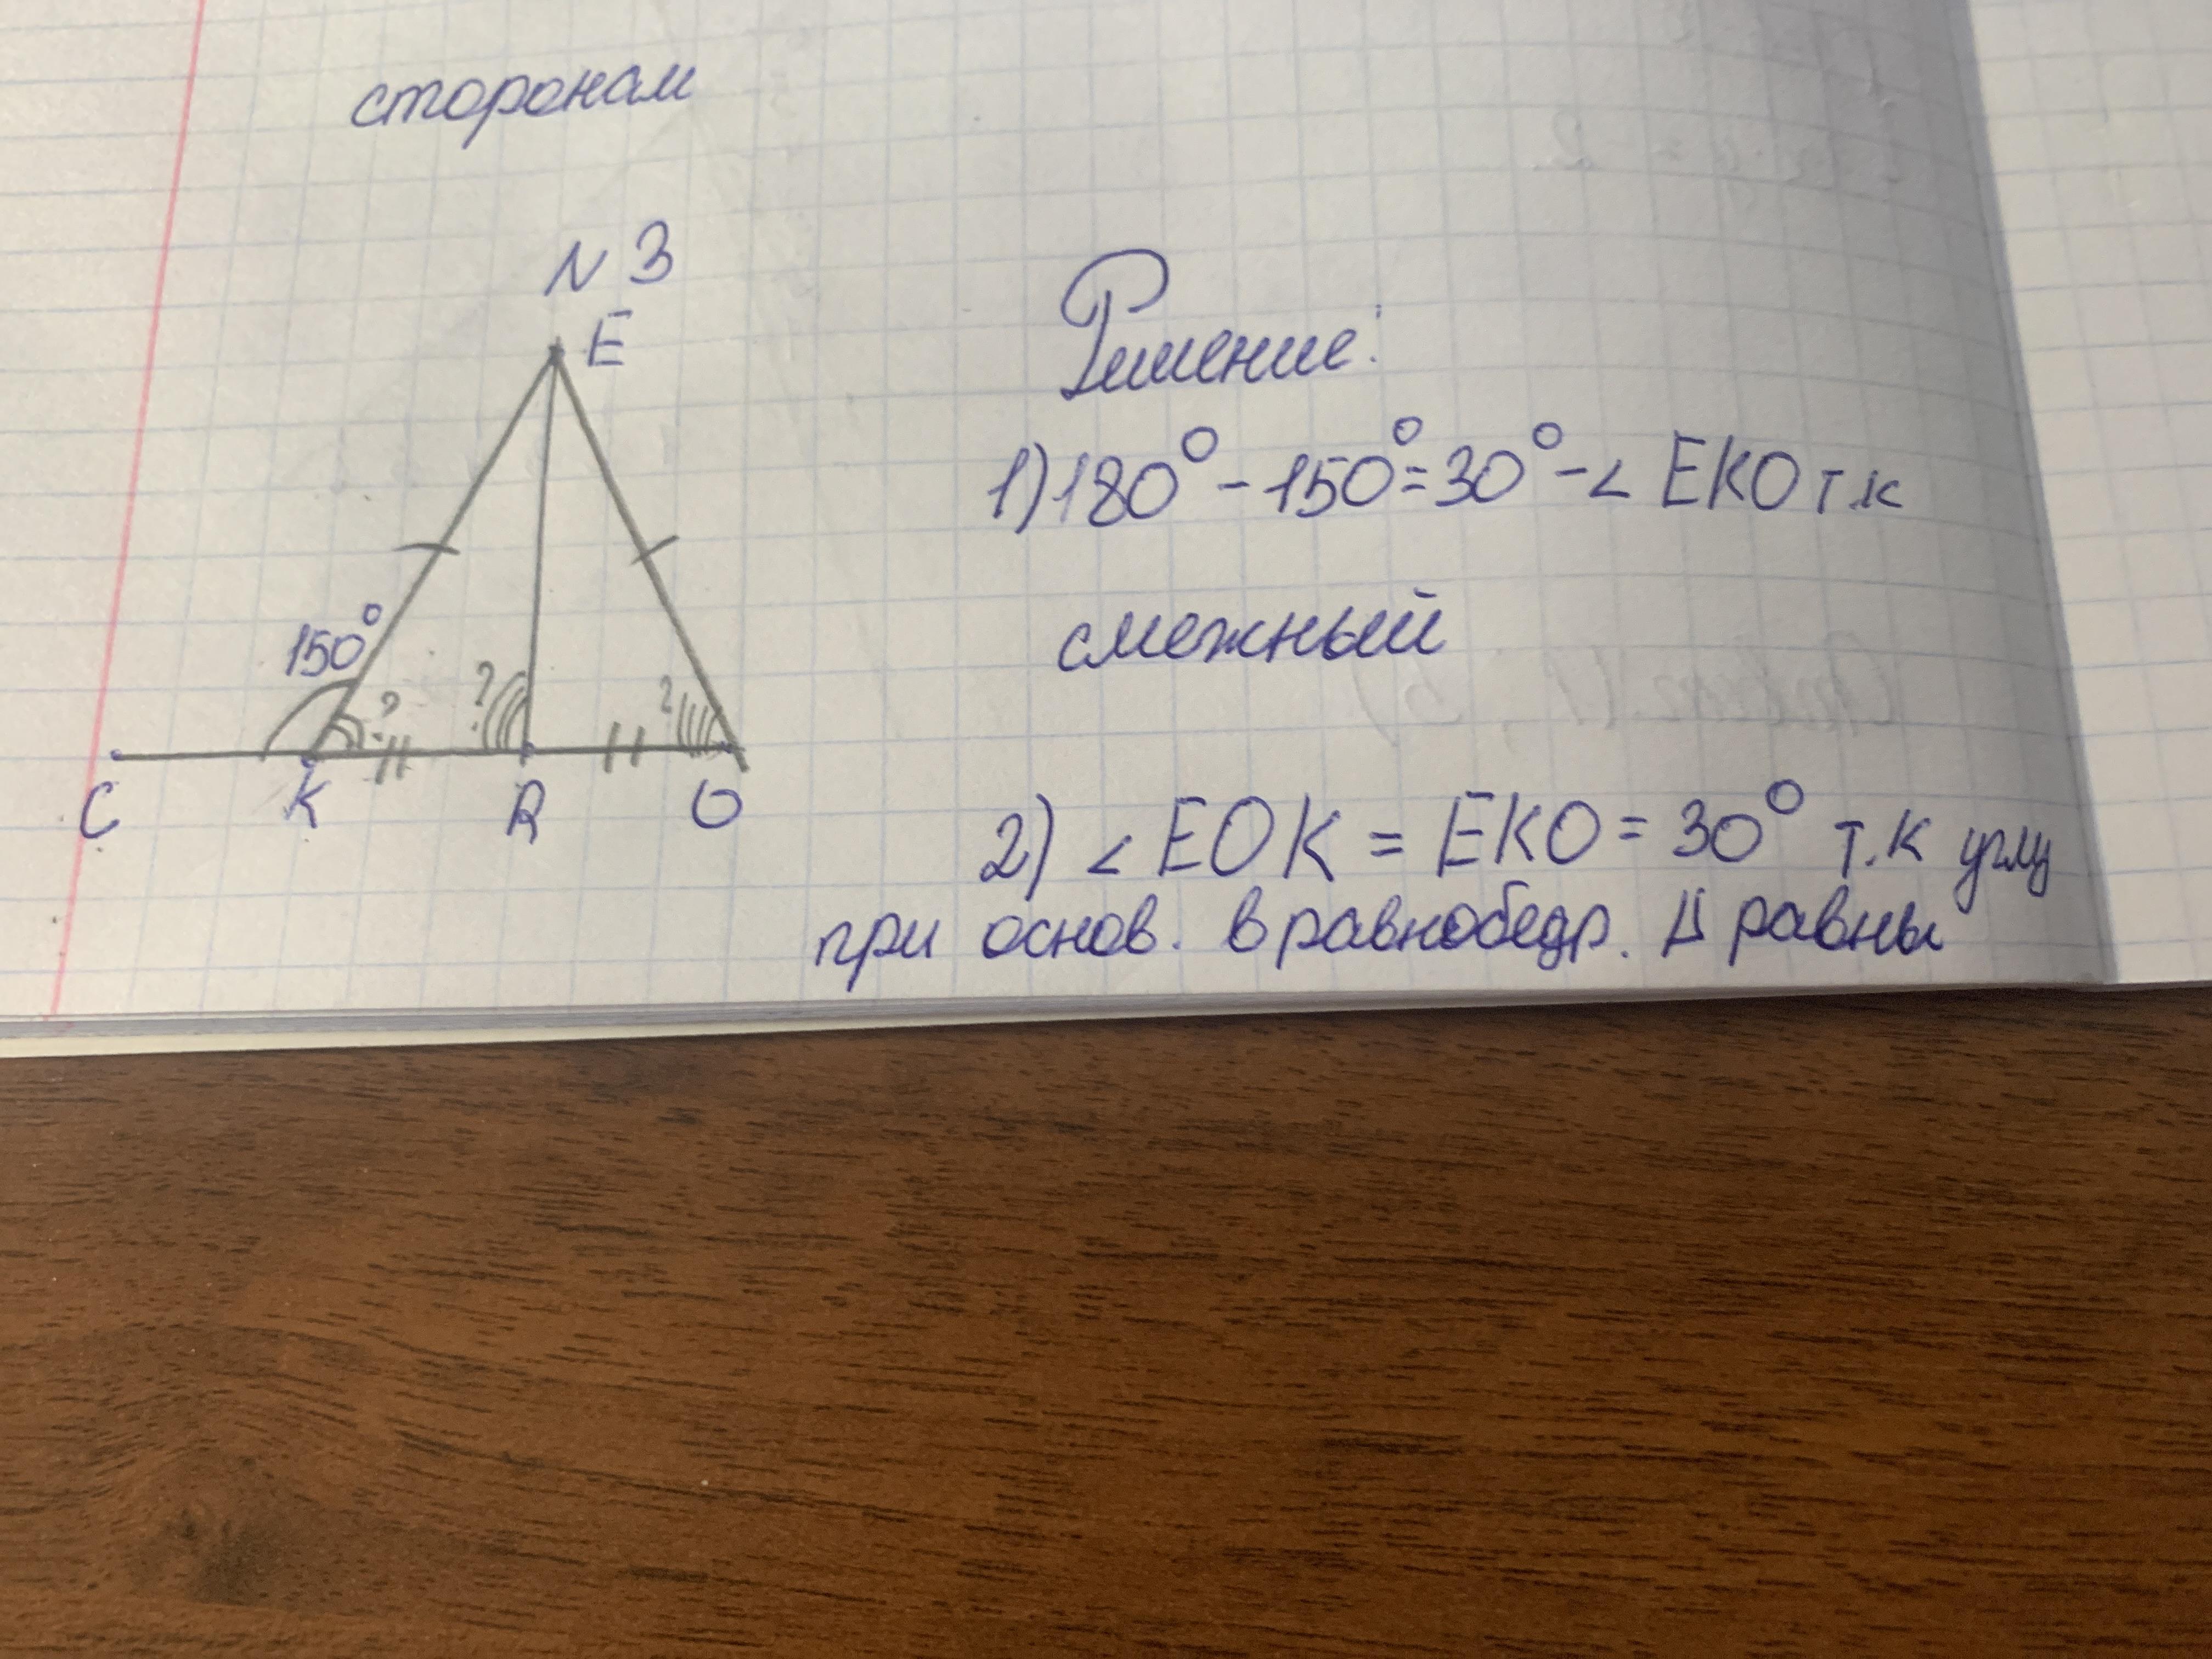 сторонам
N 3
E
150°
?
?
?
C
K
R
O
Решение:
1) 180° - 150° = 30° - < EKO т.к
смежный
2) < EOK = EKO = 30° т.к углы
при основ. в равнобедр. Δ равны